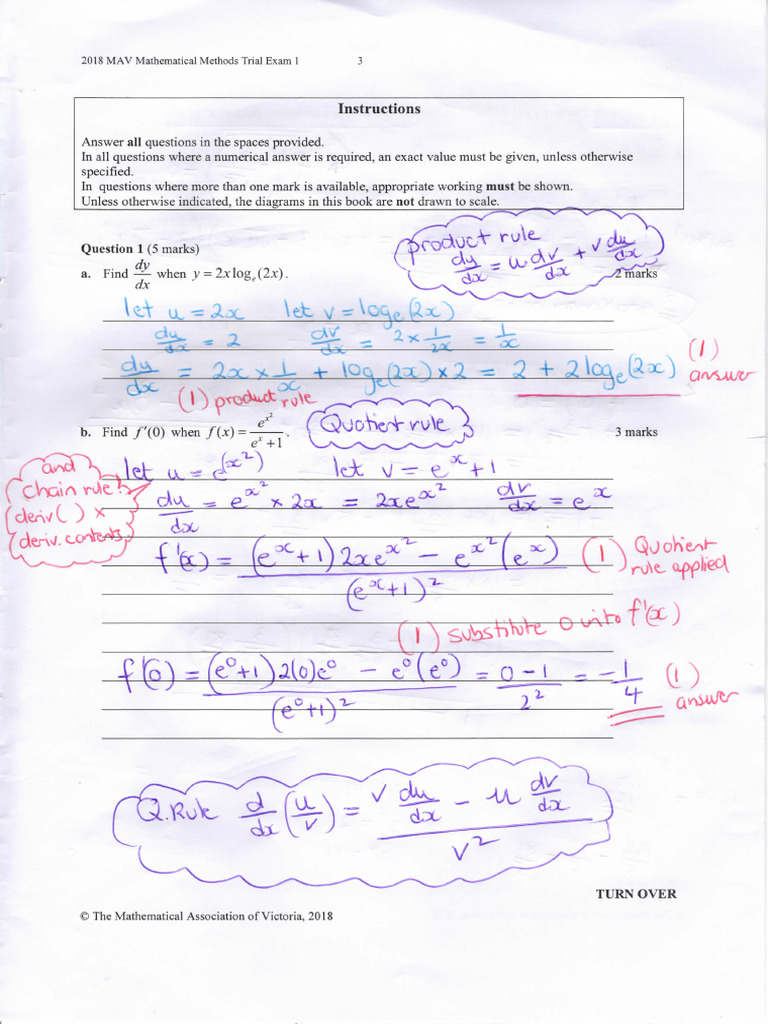 2018 MAV Mathematical Methods Trial Exam 1 3
Instructions
Answer all questions in the spaces provided.
In all questions where a numerical answer is required, an exact value must be given, unless otherwise
specified.
In questions where more than one mark is available, appropriate working must be shown.
Unless otherwise indicated, the diagrams in this book are not drawn to scale.
product rule
dy/dx = u dv/dx + v du/dx
Question 1 (5 marks)
a. Find dy/dx when y = 2x logₑ(2x). 2 marks
let u = 2x let v = logₑ(2x)
du/dx = 2 dv/dx = 2 × 1/2x = 1/x
dy/dx = 2x × 1/x + logₑ(2x) × 2 = 2 + 2logₑ(2x) (1) answer
(1) product rule
Quotient rule
b. Find f′(0) when f(x) = e^(x²)/(e^x + 1). 3 marks
let u = e^(x²) let v = e^x + 1
and
chain rule!
deriv( ) ×
deriv. contents
du/dx = e^(x²) × 2x = 2xe^(x²) dv/dx = e^x
f'(x) = ((e^x + 1) 2xe^(x²) − e^(x²)(e^x))/(e^x + 1)² (1) Quotient rule applied
(1) substitute 0 into f'(x)
f'(0) = ((e⁰ + 1) 2(0)e⁰ − e⁰(e⁰))/(e⁰ + 1)² = (0 − 1)/2² = −1/4 (1) answer
Q.Rule d/dx (u/v) = (v du/dx − u dv/dx)/v²
TURN OVER
© The Mathematical Association of Victoria, 2018